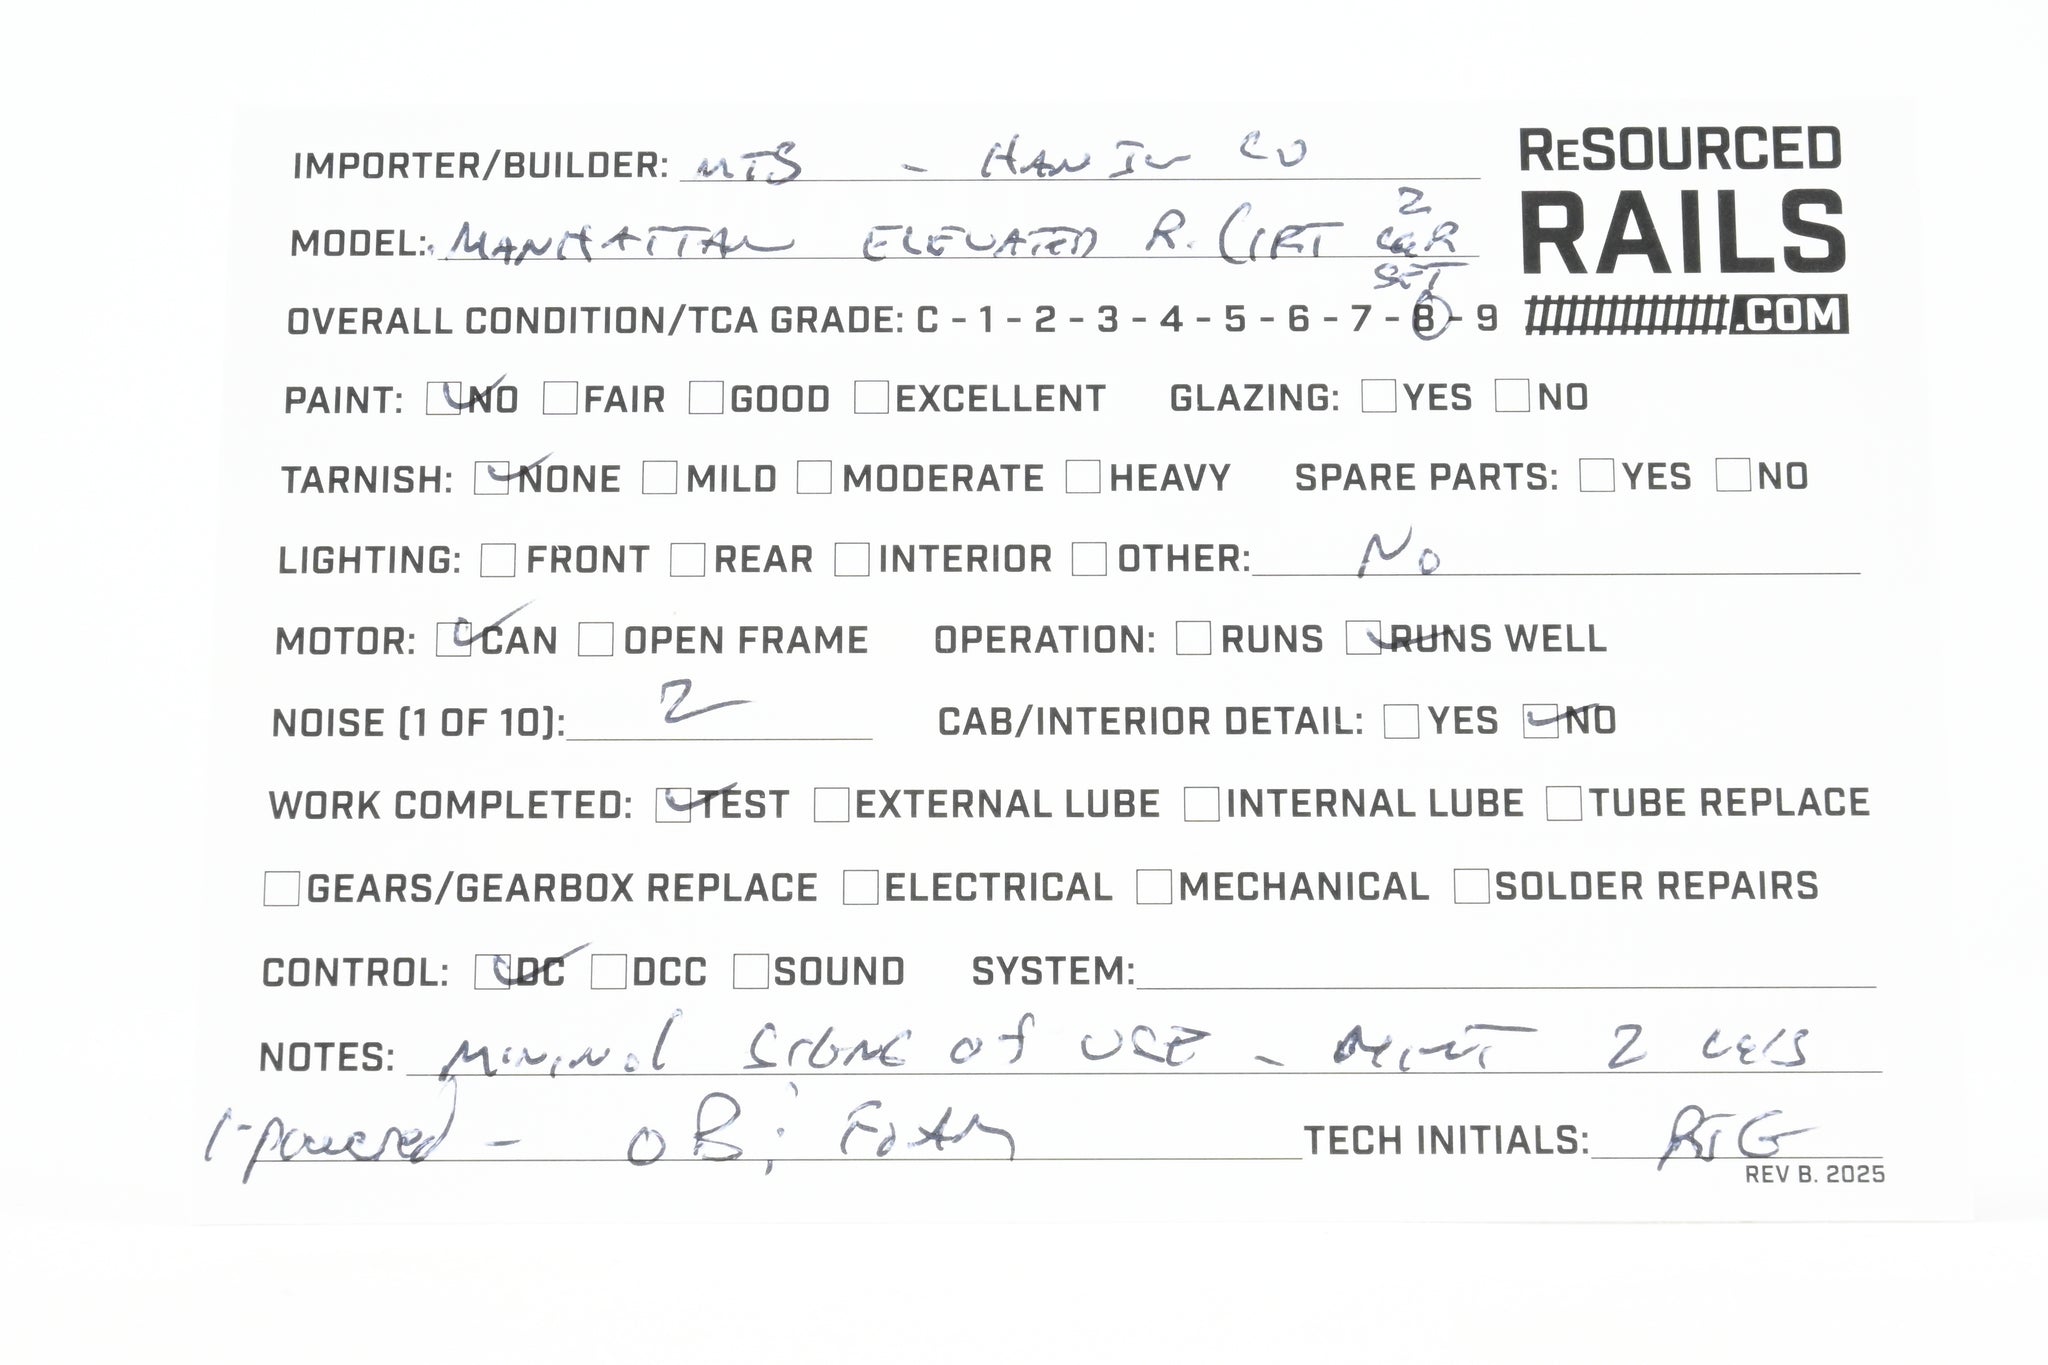 IMPORTER/BUILDER: MTS - HAN IL CO
RESOURCED
RAILS
.COM
MODEL: MANHATTAN ELEVATED R. (IRT 2 CAR SET
OVERALL CONDITION/TCA GRADE: C - 1 - 2 - 3 - 4 - 5 - 6 - 7 - 8 - 9
PAINT: NO FAIR GOOD EXCELLENT GLAZING: YES NO
TARNISH: NONE MILD MODERATE HEAVY SPARE PARTS: YES NO
LIGHTING: FRONT REAR INTERIOR OTHER: NO
MOTOR: CAN OPEN FRAME OPERATION: RUNS RUNS WELL
NOISE (1 OF 10): 2 CAB/INTERIOR DETAIL: YES NO
WORK COMPLETED: TEST EXTERNAL LUBE INTERNAL LUBE TUBE REPLACE
GEARS/GEARBOX REPLACE ELECTRICAL MECHANICAL SOLDER REPAIRS
CONTROL: DC DCC SOUND SYSTEM:
NOTES: MINIMAL SIGNS OF USE - 2 CARS
1-powered - OB; FOAM TECH INITIALS: RTG
REV B. 2025